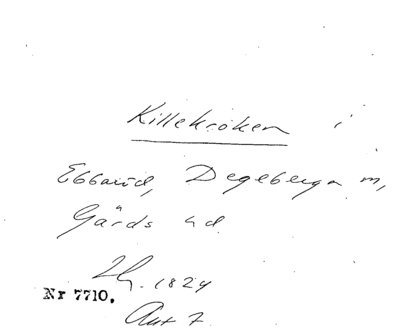 Killekroken i
Ebbarid, Degeberga m,
Gärds hd
1824
Nr 7710.